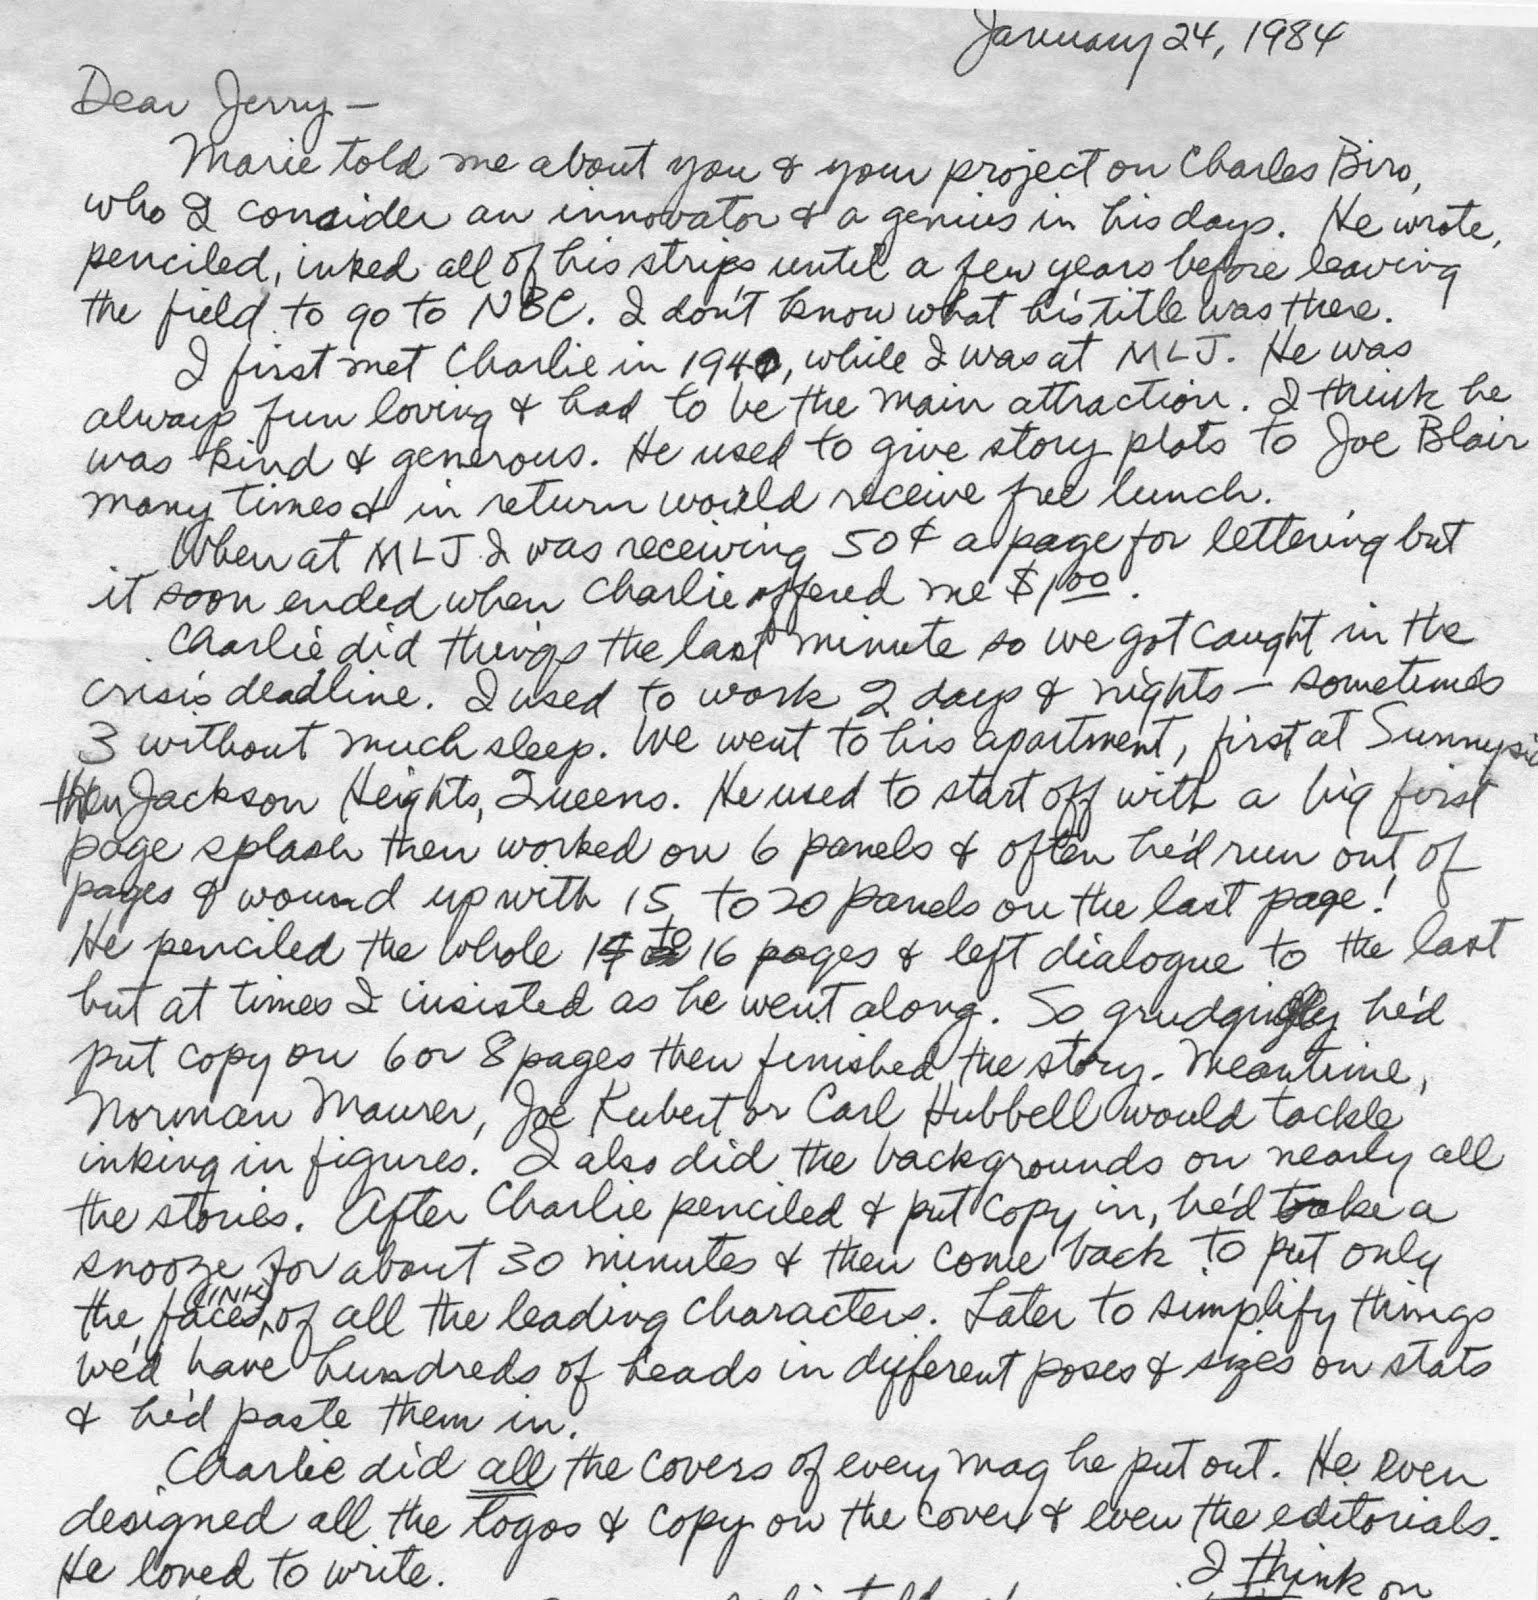 January 24, 1984
Dear Jerry —
Marie told me about you & your project on Charles Biro,
who I consider an innovator & a genius in his days. He wrote,
penciled, inked all of his strips until a few years before leaving
the field to go to NBC. I don't know what his title was there.
I first met Charlie in 1940, while I was at MLJ. He was
always fun loving & had to be the main attraction. I think he
was kind & generous. He used to give story plots to Joe Blair
many times & in return would receive free lunch.
When at MLJ I was receiving 50¢ a page for lettering but
it soon ended when Charlie offered me $1.00.
Charlie did things the last minute so we got caught in the
crisis deadline. I used to work 2 days & nights — sometimes
3 without much sleep. We went to his apartment, first at Sunnysid
then Jackson Heights, Queens. He used to start off with a big first
page splash then worked on 6 panels & often he'd run out of
pages & wound up with 15 to 20 panels on the last page!
He penciled the whole 14 to 16 pages & left dialogue to the last
but at times I insisted as he went along. So grudgingly he'd
put copy on 6 or 8 pages then finished the story. Meantime,
Norman Maurer, Joe Kubert or Carl Hubbell would tackle
inking in figures. I also did the backgrounds on nearly all
the stories. After Charlie penciled & put copy in, he'd take a
snooze for about 30 minutes & then come back to put only
the faces (INK) of all the leading characters. Later to simplify things
we'd have hundreds of heads in different poses & sizes on stats
& he'd paste them in.
Charlie did all the covers of every mag he put out. He even
designed all the logos & copy on the cover & even the editorials.
He loved to write.
I think on